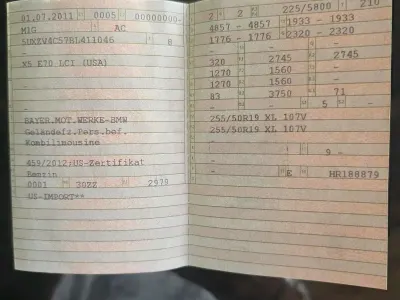 01.07.2011 0005 00000000-
M1G AC
5UXZV4C57BL411046 8
-
X5 E70 LCI (USA)
-
-
BAYER.MOT.WERKE-BMW
Geländefz.Pers.bef.
Kombilimousine
-
459/2012;US-Zertifikat
Benzin
0001 30ZZ 2979
US-IMPORT**
2 2 2 225/5800 210
4857 - 4857 1933 - 1933
1776 - 1776 2320 - 2320
- - -
320 - 2745 - 2745
1270 - 1560 -
1270 - 1560 -
83 3750 71
- - - 5 -
255/50R19 XL 107V
255/50R19 XL 107V
-
9 -
-
- E HR188879